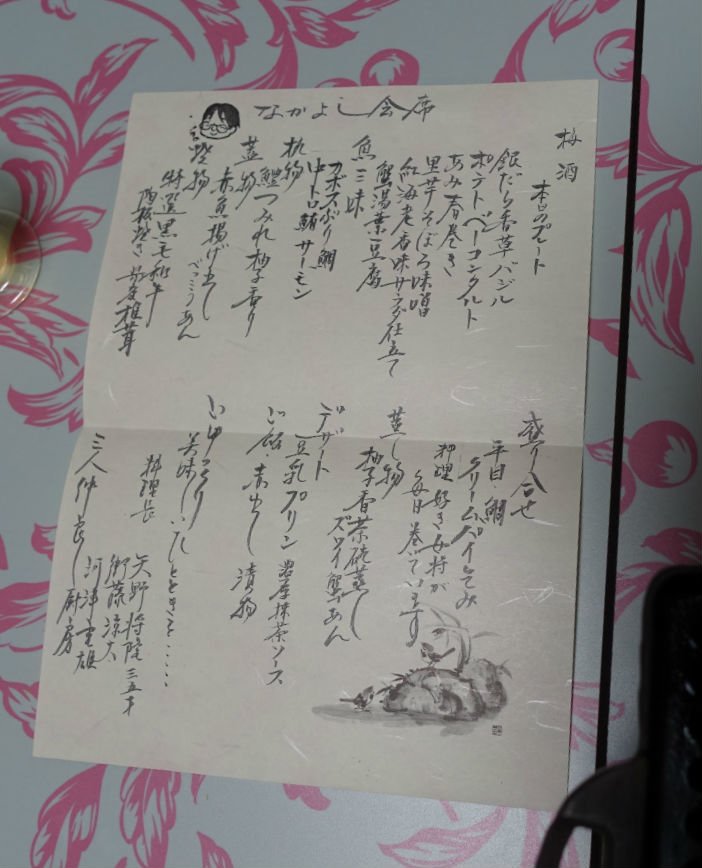 なかよし会席
梅酒
本日のプレート
銀だら香草バジル
ポテトベーコンタルト
あみ春巻き
里芋そぼろ味噌
紅海老香味サラダ仕立て
蟹湯葉豆腐
魚三昧
カボスぶり 鯛
中トロ鮪 サーモン
椀物
鯉つみれ柚子香り
蓋物
赤魚揚げ出し
べっこうあん
焼物
特選黒毛和牛
陶板焼き 椎茸
盛り合せ
平目・鯛
クリームパイ包み
料理好き女将が
毎日巻いています
蒸し物
柚子香茶碗蒸し
ズワイ蟹あん
デザート
豆乳プリン 濃厚抹茶ソース
ご飯 赤出し 漬物
ごゆっくり
美味しいひとときを……
料理長
矢野将隆 三五才
御藤涼太
河津重雄
三人仲良し厨房